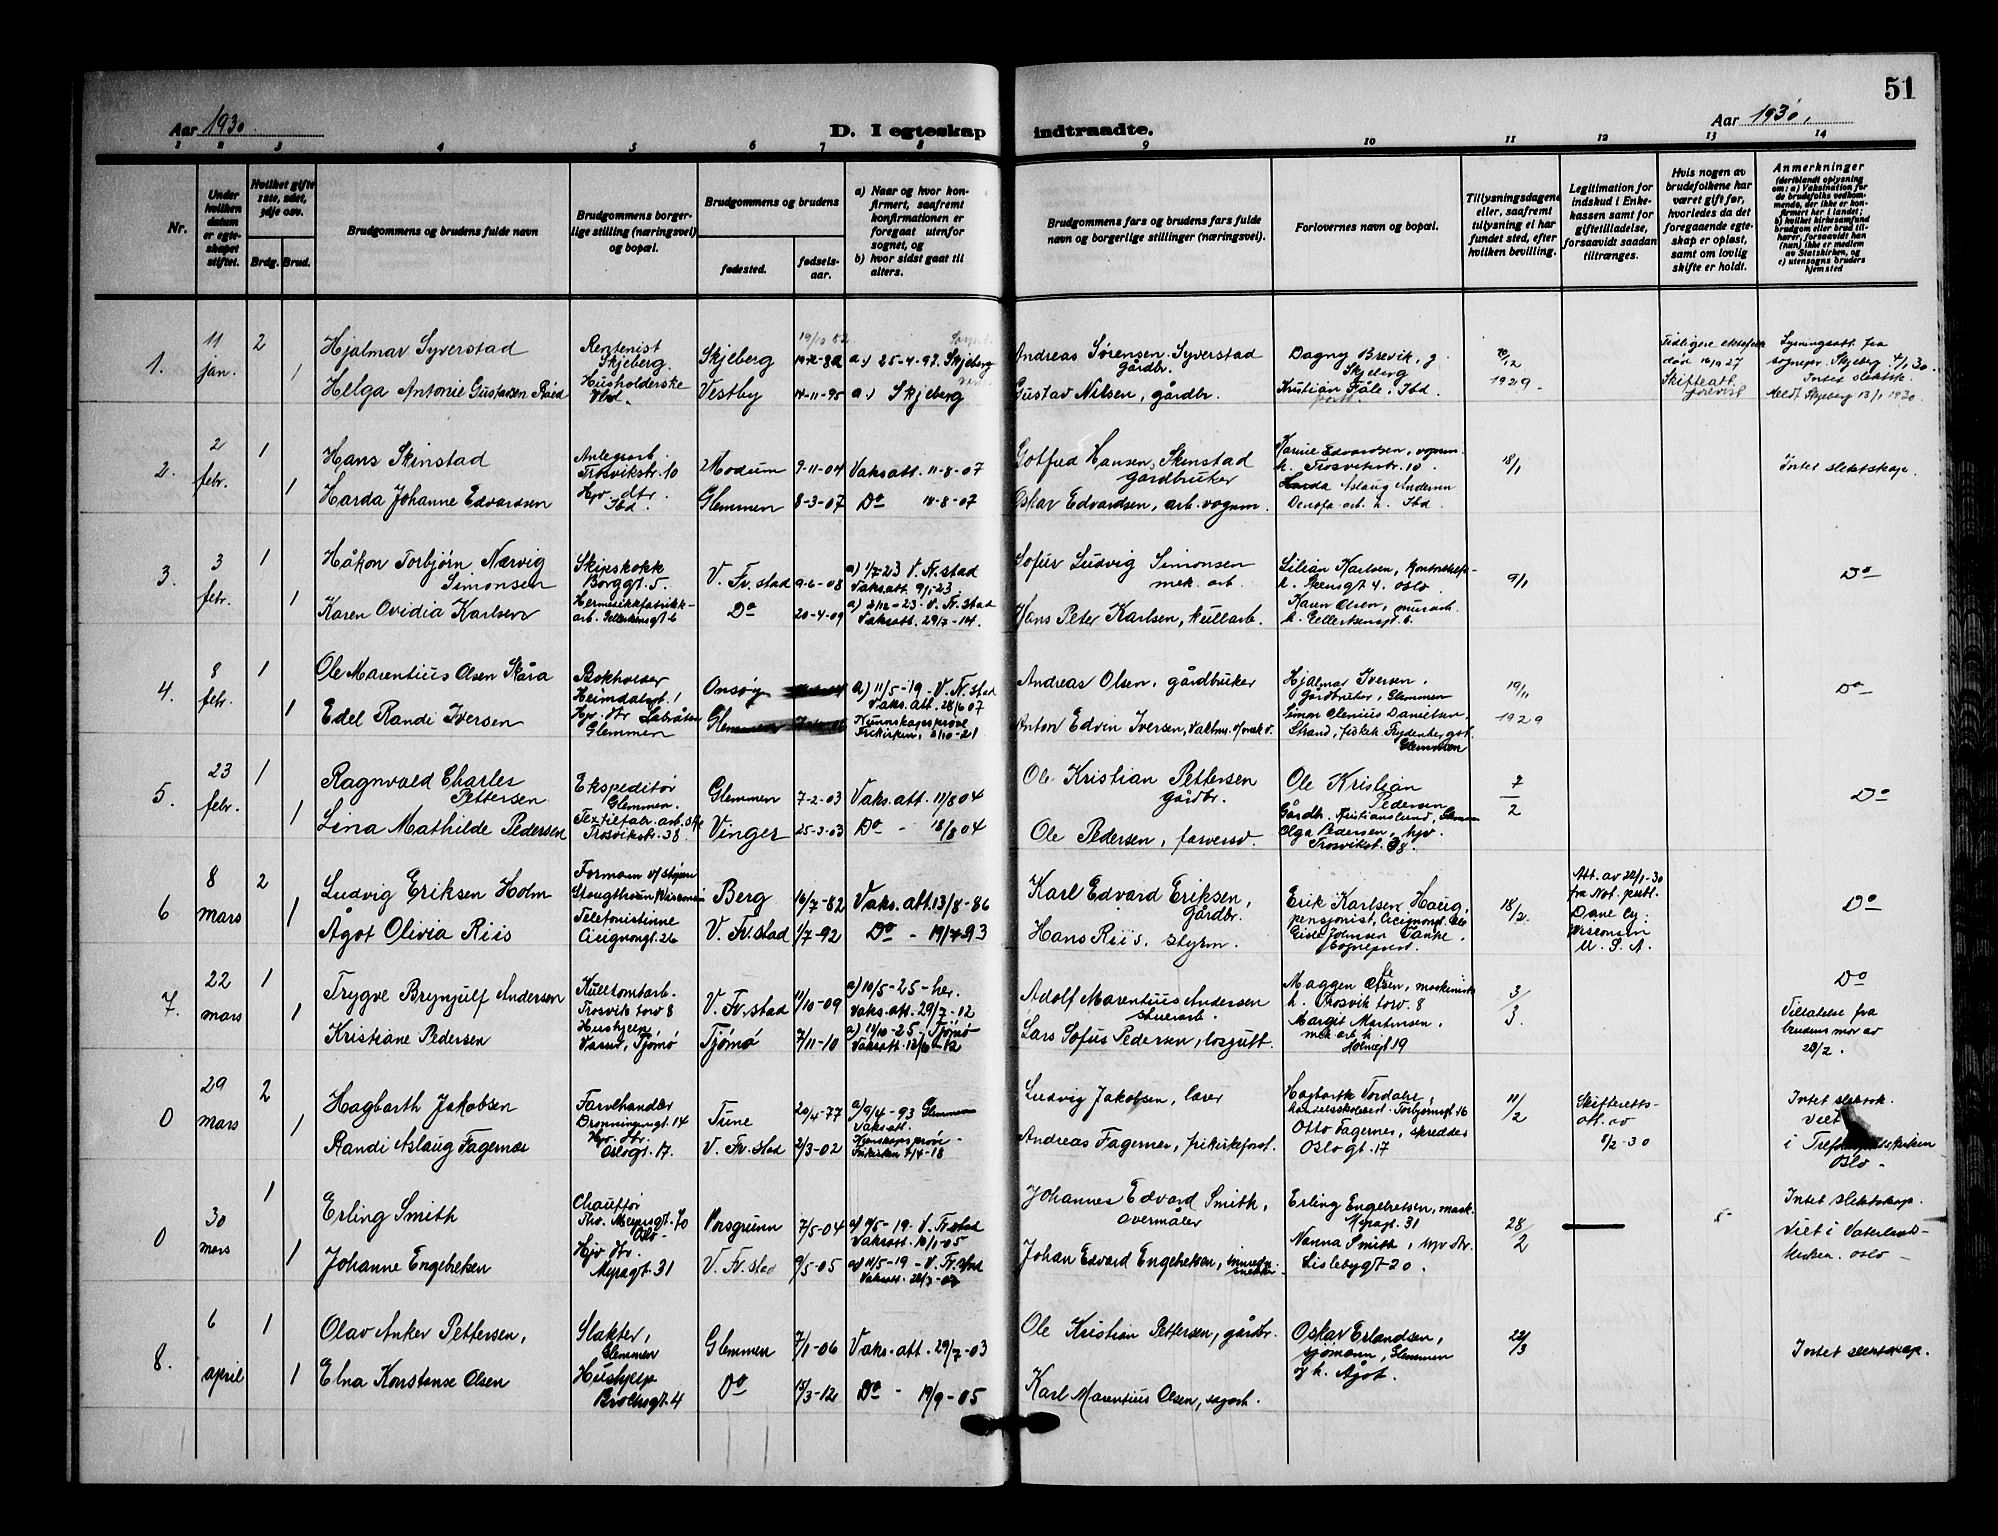 51
Aar 1930.
D. I egteskap indtraadte.
Aar 1930.
1 2 3 4 5 6 7 8 9 10 11 12 13 14
Nr.
Under hvilken datum er egteskapet stiftet.
Hvilket gifte 1ste, 2det, 3dje osv.
Brdg. Brud.
Brudgommens og brudens fulde navn
Brudgommens borgerlige stilling (næringsvei) og bopæl.
Brudgommens og brudens
fødested.
fødselsaar.
a) Naar og hvor konfirmert, saafremt konfirmationen er foregaat utenfor sognet, og
b) hvor sidst gaat til alters.
Brudgommens fars og brudens fars fulde navn og borgerlige stillinger (næringsvei).
Forlovernes navn og bopæl.
Tillysningsdagene eller, saafremt tillysning ei har fundet sted, efter hvilken bevilling.
Legitimation for indskud i Enkekassen samt for giftetilladelse, forsaavidt saadan tiltrænges.
Hvis nogen av brudefolkene har været gift før, hvorledes da det foregaaende egteskap er opløst, samt om lovlig skifte er holdt.
Anmerkninger
(deriblandt oplysning om: a) Vaksination for de brudefolks vedkommende, der ikke er konfirmert her i landet; b) hvilket kirkesamfund brudgom eller brud tilhører, forsaavidt han (hun) ikke er medlem av Statskirken, og c) utensogns bruders hjemsted
1. 11 jan. 2 1
Hjalmar Syverstad
Rentenist Skjeberg.
Skjeberg
19/10 82
a.) 25-4-97. Skjeberg
Andreas Sørensen Syverstad gårdbr.
Dagny Brevik, g. Skjeberg
1929.
Helga Antonie Gustavsen Røed
Husholderske Ibd.
Vestby
14-11-95
a.) Skjeberg
Gustav Nilsen, gårdbr.
Kristian Fåle, Ibd.
Skifteatt. forevist
Lysningsatt. fra sognepr. Skjeberg 4/1 30.
Intet slektsk.
Meldt Skjeberg 13/1 1930
2. 2 febr. 1 1
Hans Skinstad
Anlegsarb. Trosvikstr. 10
Modum
9-11-04
Vaksatt. 11-8-07
Gotfred Hansen Skinstad gårdbruker
Karine Edvardsen, vognm. h. Trosvikstr. 10.
18/1
Intet slektskap.
Harda Johanne Edvardsen
Hjv. dtr. Ibd.
Glemmen
8-3-07
Do 14-8-07
Oskar Edvardsen, arb. vognm.
Aslaug Andersen Denofa arb. h. Ibd.
3. 3 febr. 1 1
Håkon Torbjørn Nærvig Simonsen
Skipskokk Borggt. 5.
V. Fr. stad
9-6-08
a) 1/7 23 V. Fr. stad
Vaksatt. 9/1-23
Sofus Ludvig Simonsen mek. arb.
Lilian Karlsen, h. Steensgt 4. Oslo
9/1
Do
Karen Ovidia Karlsen
Hermetikkfabrikk-arb. Gellertsensgt 6
Do
20-4-09
a) 2/12-23. V. Fr. stad
Vaksatt. 29/7-14.
Hans Peter Karlsen, kullarb.
Karen Olsen, murarb. h. Gellertsengt 6.
4. 8 febr. 1 1
Ole Marentius Olsen Skåra
Bokholder Heimdalsgt. 1
Onsøy
a) 11/5-19-V. Fr. stad
Vaks. att. 28/6 07
Andreas Olsen, gårdbruker
Hjalmar Iversen, Gårdbruker, Glemmen
19/11 1929
Do
Edel Randi Iversen
Hjv. dtr. Labråten Glemmen
Glemmen
Kunnskapsprøve Frikirken, 2/10-21
Anton Edvin Iversen,
Simon Clenius Danielsen, Strand, Glemmen
5. 23 febr. 1 1
Ragnvald Charles Pettersen
Ekspeditør Glemmen.
Glemmen
7-2-03
Vaks. att. 11/8 04
Ole Kristian Pettersen gårdbr.
Ole Kristian Pedersen Gårdb. Kristianslund, Glemmen
7/2
Do
Lina Mathilde Pedersen
Textilfabr. arb. ske Trosvikstr. 38
Vinger
25-3-03
Do - 18/8 04
Ole Pedersen, farversv.
Olga Pedersen, hjv. Trosvikst. 38.
6 8 mars 2 1
Ludvig Eriksen Holm
Formann
Berg
16/7-82
Vaks. att. 13/8-86
Karl Edvard Eriksen, Gårdbr.
Erik Karlsen Haug, pensjonist,
18/2.
Att. av 28/1-30 fra Not. publ. Dane Cy: Wisconsin U. S. A.
Do
Ågot Olivia Riis
Telefonistinne Cicignongt. 26
V. Fr. stad
1/7-92
Do - 19/7-93
Hans Riis, styrm.
Sogneprest.
7. 22 mars 1 1
Trygve Brynjulf Andersen
Kulltomtarb. Trosvik torv 8
V. Fr. stad
11/10-09
a) 10/5-25-her.
Vaks. att. 29/7-12
Adolf Marentius Andersen stuerarb.
Maggen Olsen, maskinist h. Trosvik torv. 8
3/3.
Do
Tillatelse fra brudens mor av 28/2.
Kristiane Pedersen
Hushjelp Vasad, Tjømø
Tjømø
7/11-10
a) 11/10-25-Tjømø
Vaksatt. 12/6-12
Lars Sofus Pedersen, losgutt.
Margit Martinsen, mek. arb. h. Holmegt 19
0 29 mars 2 1
Hagbarth Jakobsen
Farvehandler Dronningensgt. 14
Tune
20/4-77
a) 9/4-93 Glemmen
Vaksatt.
Ludvig Jakobsen, lærer
Hagbarth Tordalre, Torbjørnsgt 16
11/2
Skifteretts-att. av 8/2-30
Intet slektsk.
Viet i Oslo.
Randi Aslaug Fagernes
Hjv. dtr. Oslogt. 17.
V. Fr. stad
2/3-02
Kunskapsprøve - Frikirken 7/4-18
Andreas Fagernes, frikirkeforst.
Otto Fagernes, skredder Oslogt. 17
0 30 mars 1 1
Erling Smith
Chauffør Thv. Meyersgt. 70 Oslo-
Porsgrunn
7/5-04
a) 11/5-19-V. Fr. stad
Vaksatt. 10/1-05
Johannes Edvard Smith, overmåler
Erling Engebretsen, mask. Myragt. 31
28/2
Intet slektskap.
Viet i Vaterland-kirken. Oslo-
Johanne Engebretsen
Hjv. dtr. Myragt. 31
V. Fr. stad
9/5-05
a) 11/5-19-V. Fr. stad
Johan Edvard Engebretsen,
Nanna Smith, hjv. dtr. Lislebygt 20.
8. 6 april 1 1
Olav Anker Pettersen,
Slakter, Glemmen
Glemmen
7/1-06
Vaks. att. 29/7-03
Ole Kristian Pettersen, gårdbr.
Oskar Erlandsen, sjømann, Glemmen og h. Ågot.
22/3
Intet slektskap.
Elna Konstanse Olsen
Hushjelp Brochsgt. 4
Do
15/3-12
Do - 19/9-05
Karl Marentius Olsen, sagarb.